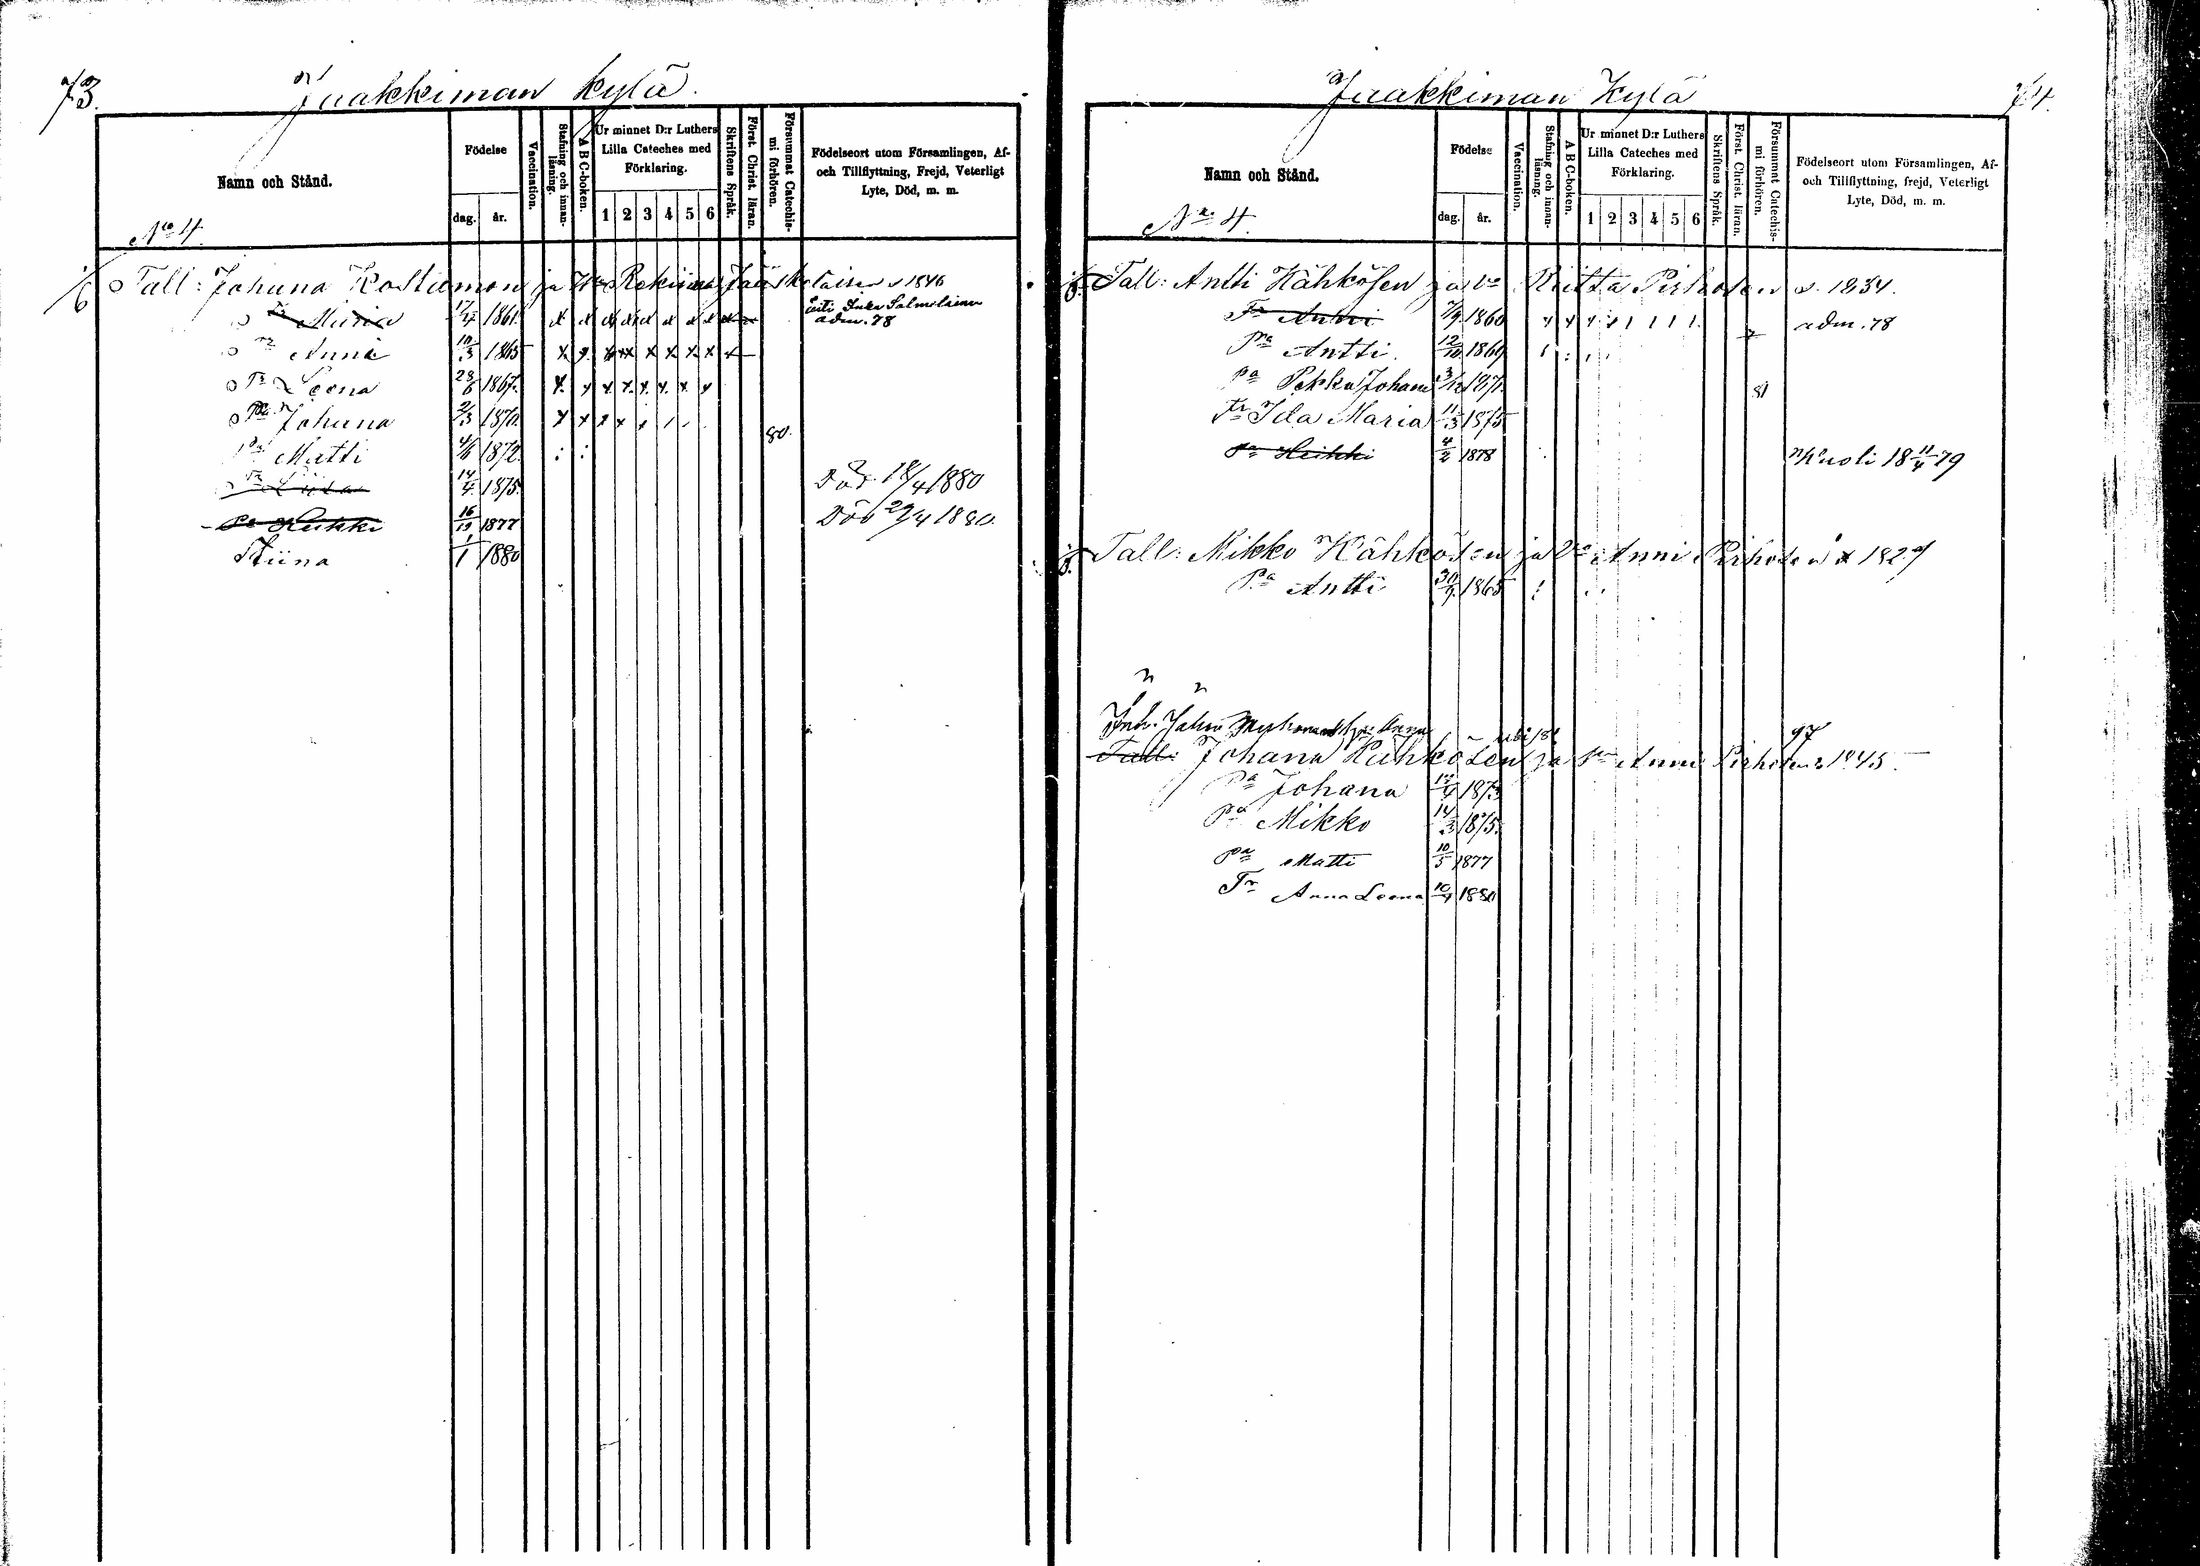 73.
Jaakkiman kylä.
Namn och Stånd.
No 4.
Födelse
dag. år.
Vaccination.
Stafning och innanläsning.
A B C-boken.
Ur minnet D:r Luthers Lilla Cateches med Förklaring.
1 2 3 4 5 6
Skriftens Språk.
Först. Christ. läran.
Försummat Catechismi förhören.
Födelseort utom Församlingen, Af- och Tillflyttning, Frejd, Veterligt Lyte, Död, m. m.
Tall: Johana Kostiamon ja Jääskeläisen s 1846
Tr Maria 17/4 1861 adm. 78
Tr Anni 10/3 1865
Tr Leena 28/6 1867.
Pa Johana 2/3 1870.
Pa Matti 4/6 1872. 80.
Tr Liisa 14/4 1875. Död 18/4 1880
Pa Heikki 16/19 1877 Död 29/4 1880.
Stiina 1/1 1880
Jaakkiman Kylä
74.
Namn och Stånd.
No 4.
Födelse
dag. år.
Vaccination.
Stafning och innanläsning.
A B C-boken.
Ur minnet D:r Luthers Lilla Cateches med Förklaring.
1 2 3 4 5 6
Skriftens Språk.
Först. Christ. läran.
Försummat Catechismi förhören.
Födelseort utom Församlingen, Af- och Tillflyttning, frejd, Veterligt Lyte, Död, m. m.
Tall: Antti Kähkösen ja Va Riitta Pirhosen s. 1834.
Tr Anni 7/9 1860 adm. 78
Pa Antti 12/10 1869
Pa Pekka Johana 3/12 1871. 81
Tr Ida Maria 11/3 1875
Pa Heikki 4/2 1878 kuoli 18 11/4 79
Tall: Mikko Kähkösen ja Va Anni Pirhosen 1829
Pa Antti 30/9 1865
Johana Kähkösen ja Anni Pirhosen 1845
Pa Johana 1873
Pa Mikko 14/3 1875.
Pa Matti 10/5 1877
Tr Anna Leena 1880